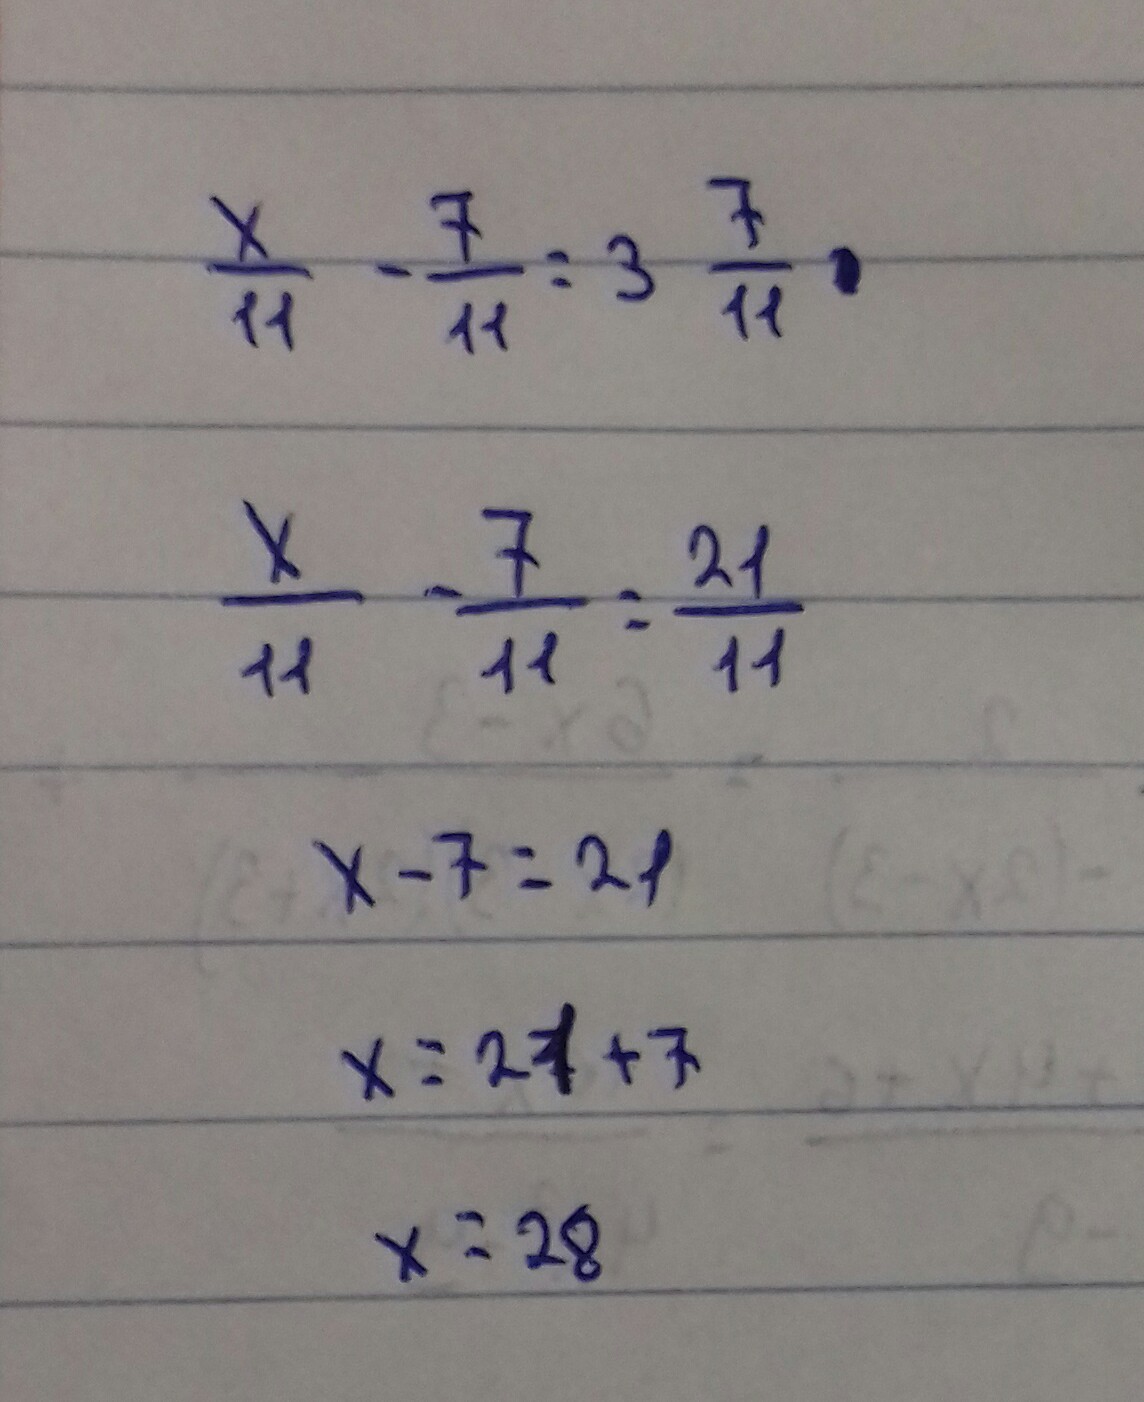 x/11 - 7/11 = 3 7/11
x/11 - 7/11 = 21/11
x - 7 = 21
x = 21 + 7
x = 28